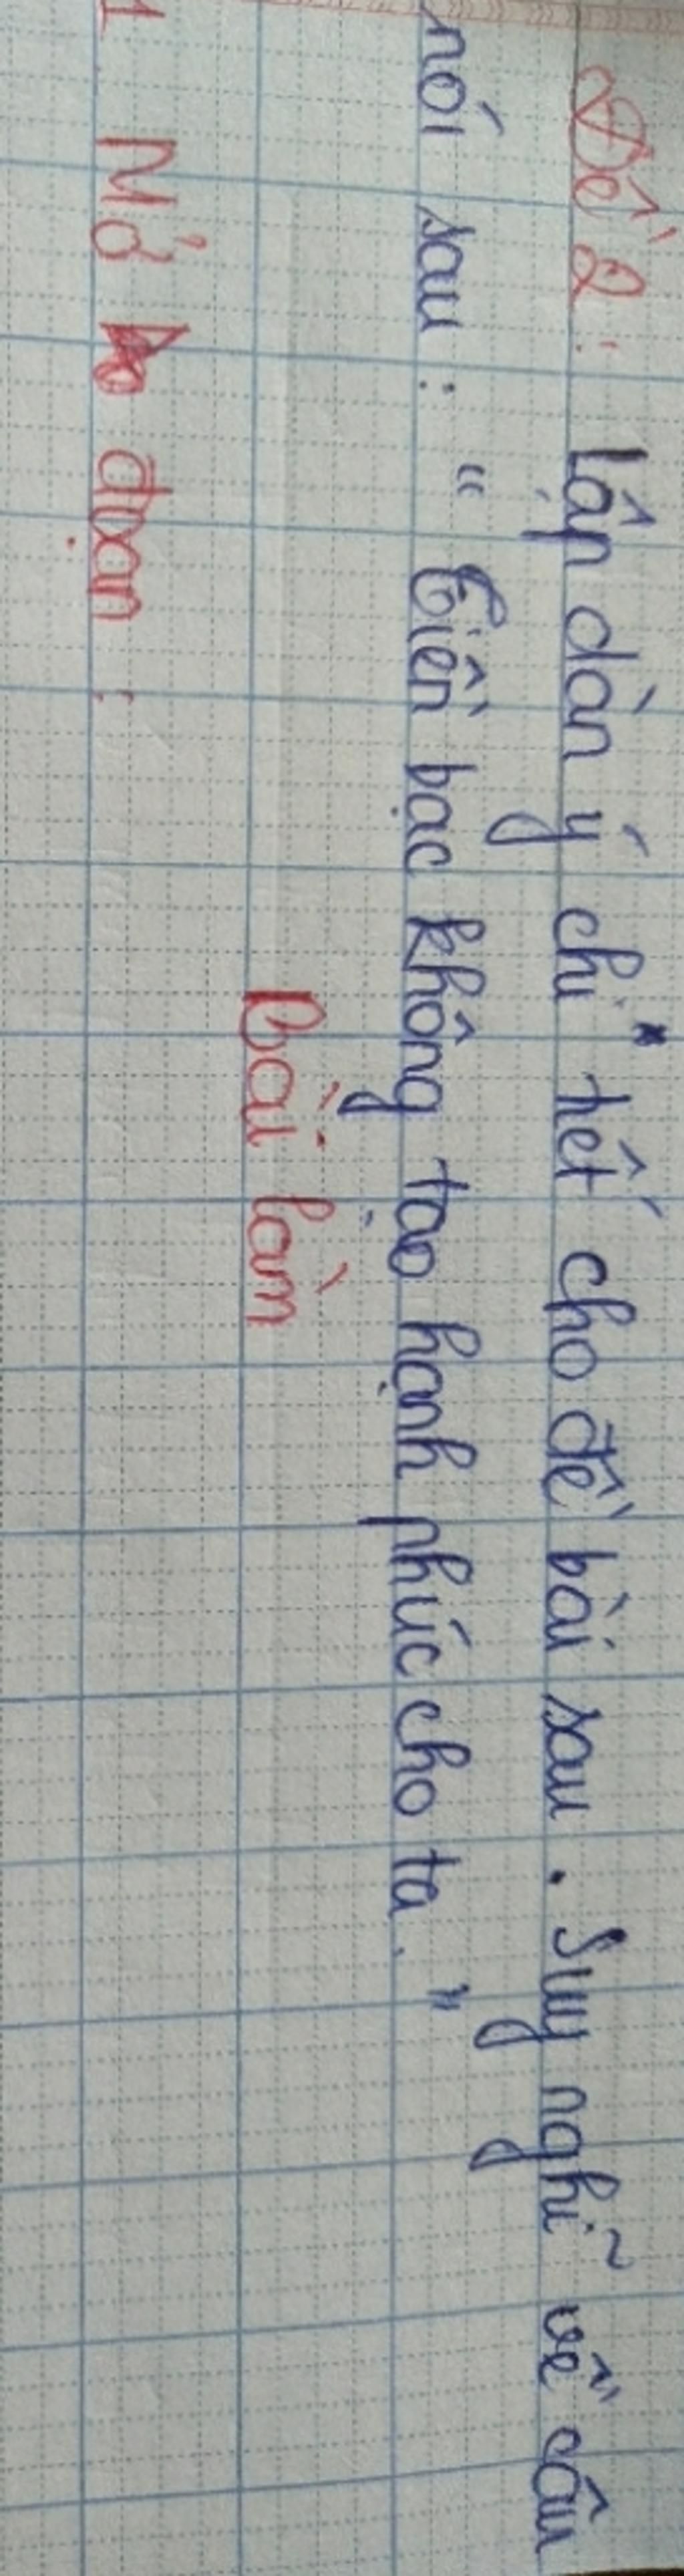 Đề 2: Lập dàn ý chi tiết cho đề bài sau. Suy nghĩ về câu
nói sau: " Tiền bạc không tạo hạnh phúc cho ta. "
Bài làm
1. Mở đoạn: